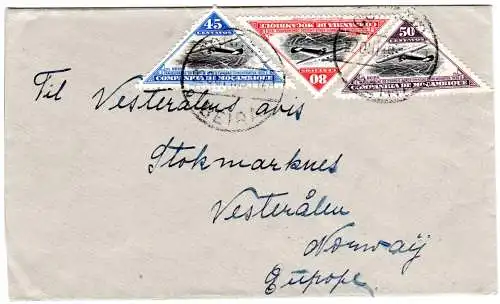 45
CENTAVOS
COMPANHIA DE MOÇAMBIQUE
COMPANHIA DE MOÇAMBIQUE
80
50
CENTAVOS
COMPANHIA DE MOÇAMBIQUE
BEIRA
Til Vesterålens avis
Stokmarknes
Vesterålen
Norwaÿ
Europe